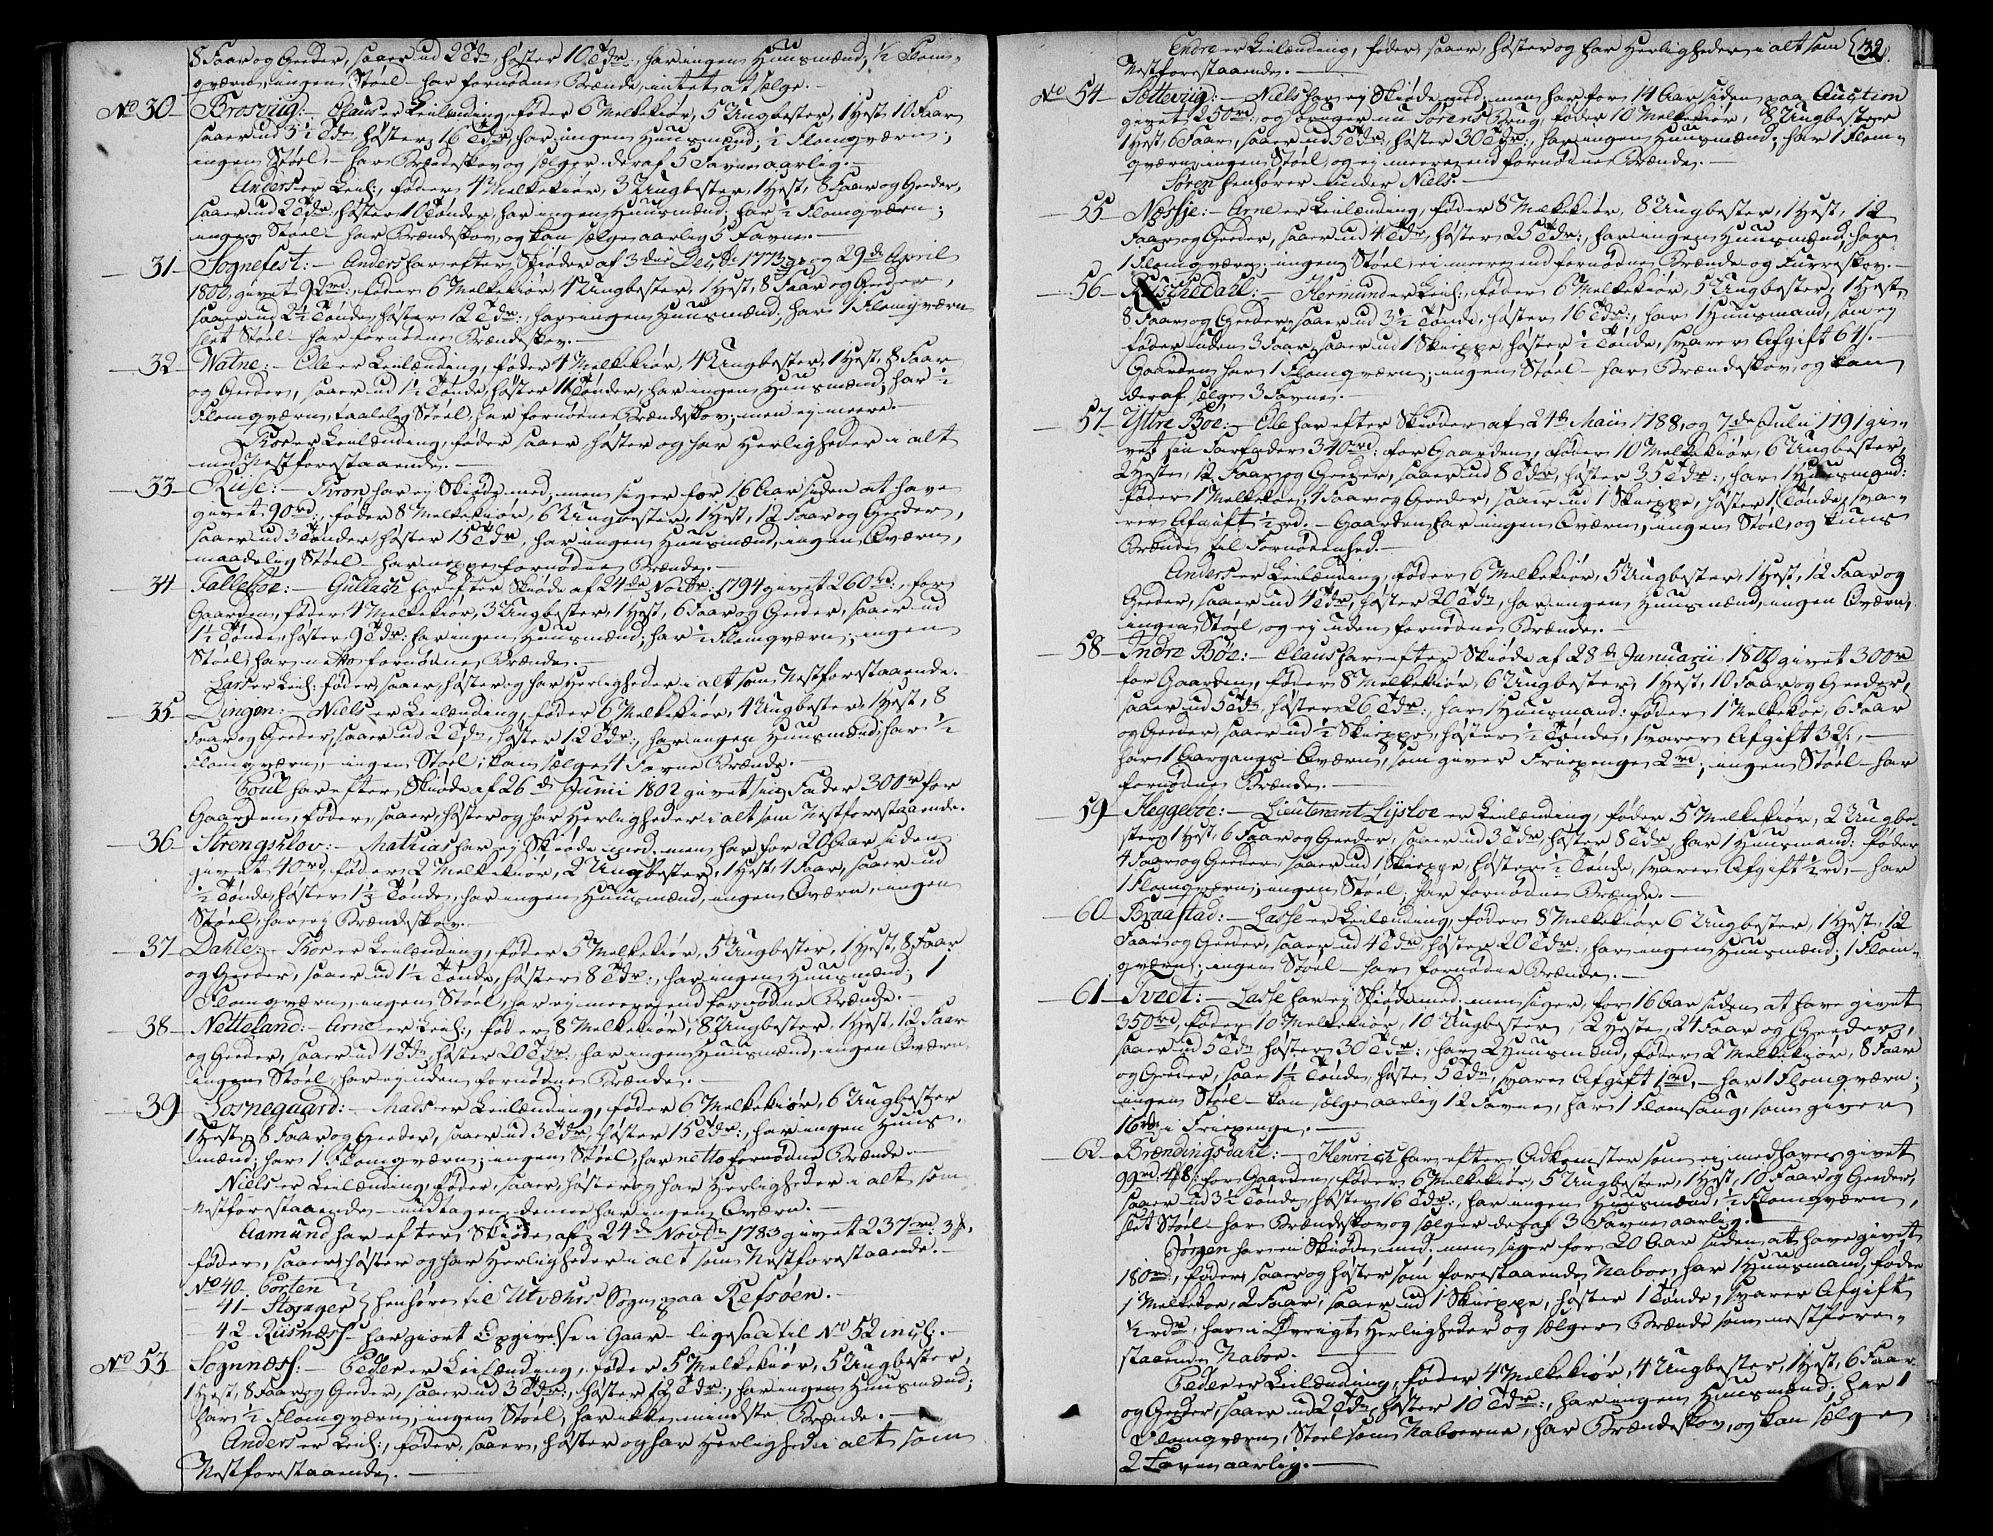 8 Faar og Geeder, saaer ud 2 Tdr høster 10 Tdr:, har ingen Huusmænd, ½ Flom-
qværn, ingen Støel - har fornødne Brænde, intet at sælge.-
No 30 - Brosviig:- Claus er Leilænding, føder 6 Melkekiør, 5 Ungbester, 1 Hest, 10 Faar
saaer ud 3½ Tdr, høster 16 Tdr, har ingen Huusmænd; ½ Flomqværn;
ingen Støel - har Brændeskov og sælger deraf 3 Favne aarlig.-
Anders er Leil:, føder 4 Melkekiør, 3 Ungbester, 1 Hest, 8 Faar og Geeder,
saaer ud 2 Tdr, høster 10 Tønder, har ingen Huusmænd; har ½ Flomqværn;
ingen Støel - har Brændeskov, og kan sælge aarlig 5 Favne.-
31 - Sognefest:- Anders har efter Skiøder af 3die Decbr 1773 og 29de April
1802, givet 92rd:, føder 6 Melkekiør, 4 Ungbester, 1 Hest, 8 Faar og Geeder,
saaer ud 2½ Tønde, høster 12 Tdr:, har ingen Huusmænd; har 1 Flomqværn
slet Støel - har fornødne Brændeskov.-
32 - Watne:- Ole er Leilænding, føder 4 Melkekiør, 4 Ungbester, 1 Hest, 8 Faar
og Geeder, saaer ud 1½ Tønde, høster 11 Tønder, har ingen Huusmænd; har ½
Flomqværn, taalelig Støel, har fornødne Brændeskov, men ej meere.-
Thor er Leilænding, føder saaer høster og har Herligheder i alt
med Nestforestaaende.-
33 - Riise:- Thron har ej Skiøde med, men siger for 16 Aar siden at have
givet 90rd:, føder 8 Melkekiør, 6 Ungbester, 1 Hest, 12 Faar og Geeder,
saaer ud 3 Tønder, høster 15 Tdr, har ingen Huusmænd, ingen Qværn,
maadelig Støel - har neppe fornødne Brænde.-
34 - Tallebøe:- Gullach har efter Skiøde af 24de Novbr: 1794 givet 260rd:, for
Gaarden, føder 4 Melkekiør, 3 Ungbester, 1 Hest, 6 Faar og Geeder, saaer ud
1½ Tønde, høster 9 Tdr:, har ingen Huusmænd; har ½ Flomqværn; ingen
Støel, har netto fornødne Brænde.-
Lars er Leil: føder, saaer, høster og har Herligheder i alt som Nestforestaaende.
35 - Dingen:- Niels er Leilænding, føder 6 Melkekiør, 4 Ungbester, 1 Hest, 8
Faar og Geeder, saaer ud 2 Tdr, høster 12 Tdr:, har ingen Huusmænd; har ½
Flomqværn, ingen Støel; kan sælge 1 Favne Brænde.-
Poul har efter Skiøde af 26de Junii 1802 givet sin Fader 300rd for
Gaarden, føder, saaer, høster og har Herligheder i alt som Nestforestaaende.
36 - Strengshlov:- Mathias har ej Skiøde med, men har for 20 Aar siden
givet 40rd, føder 2 Melkekiør, 2 Ungbester, 1 Hest, 4 Faar, saaer ud
½ Tønde, høster 1½ Tønde, har ingen Huusmænd, ingen Qværn, ingen
Støel, har ej Brændeskov.
37 - Dahle:- Thor er Leilænding, føder 5 Melkekiør, 5 Ungbester, 1 Hest, 8 Faar
og Geeder, saaer ud 1½ Tønde, høster 8 Tdr:, har ingen Huusmænd; 1
Flomqværn, ingen Støel, har ej meere end fornødne Brænde.-
38 - Netteland:- Arne er Leil:, føder 8 Melkekiør, 8 Ungbester, 1 Hest, 12 Faar
og Geeder, saaer ud 4 Tdr, høster 20 Tdr:, har ingen Huusmænd, ingen Qværn,
ingen Støel, har ej uden fornødne Brænde.-
39 - Losnegaard:- Mads er Leilænding, føder 6 Melkekiør, 6 Ungbester
1 Hest, 8 Faar og Geeder, saaer ud 3 Tdr, høster 15 Tdr:, har ingen Huus-
mænd; har 1 Flomqværn; ingen Støel, har netto fornødne Brænde.-
Niels er Leilænding, føder, saaer, høster og har Herligheder i alt som
nestforestaaende - undtagen denne har ingen Qværn.-
Aamund har efter Skiøde af 24de Novbr 1783 givet 237rd: 3 f,
føder, saaer, høster og har Herligheder i alt som Nestforestaaende.-
No 40. Porten
- 41 - Stavager } henhøre til Utvæhrs Sogn paa Refsøen.-
- 42 - Riisnæss - har giort Opgivelse i Gaar - ligesaa til No 52 incl:-
No 53 - Sognnæss:- Peder er Leilænding, føder 5 Melkekiør, 5 Ungbester,
1 Hest, 8 Faar og Geeder, saaer ud 3 Tdr:, høster 12 Tdr:, har ingen Huusmænd;
har ½ Flomqværn, ingen Støel, har ikke mindste Brænde.-
Anders er Leil:, føder, saaer, høster og har Herlighed i alt som
Nestforestaaende.-
Endre er Leilænding, føder, saaer, høster og har Herligheder i alt som 132
Nestforestaaende.-
No 54 - Sættevig:- Niels har ej Skiøde med, men har for 14 Aar siden paa Auction
givet 250rd:, og bruger nu Sørens Brug, føder 10 Melkekiør, 8 Ungbester
1 Hest, 6 Faar, saaer ud 5 Tdr, høster 30 Tdr:, har ingen Huusmænd; har 1 Flom-
qværn, ingen Støel, og ej meere end fornødne Brænde.-
Søren henhører under Niels.-
55 - Næsse:- Arne er Leilænding, føder 8 Melkekiør, 8 Ungbester, 1 Hest, 12
Faar og Geeder, saaer ud 4 Tdr, høster 25 Tdr:, har ingen Huusmænd, har
1 Flomqværn; ingen Støel, ej meere end fornødne Brænde og Furreskov.-
56 - Hermund er Leil:, føder 6 Melkekiør, 5 Ungbester, 1 Hest,
8 Faar og Geeder, saaer ud 3½ Tønde, høster 16 Tdr:, har 1 Huusmand, som ej
føder uden 3 Faar, saaer ud 1 Skieppe, høster ½ Tønde, svarer Afgift 64s.-
Gaarden har 1 Flomqværn; ingen Støel - har Brændeskov, og kan
deraf sælge 3 Favne.-
57 - Ytre Bøe:- Ole har efter Skiøder af 24de Maii 1788, og 7de Julii 1791 gi-
vet sin Farfader 340rd: for Gaarden, føder 10 Melkekiør, 6 Ungbester,
2 Heste, 12 Faar og Geeder, saaer ud 8 Tdr, høster 35 Tdr:, har 1 Huusmand:
føder 1 Melkekoe, 4 Faar og Geeder, saaer ud 1 Skieppe, høster 1 Tønde, sva-
rer Afgift ½rd.- Gaarden har ingen Qværn; ingen Støel, og kuns
Brænde til Fornødenhed.-
Anders er Leilænding, føder 6 Melkekiør, 5 Ungbester, 1 Hest, 12 Faar og
Geeder, saaer ud 4 Tdr, høster 20 Tdr, har ingen Huusmænd, ingen Qværn,
ingen Støel, og ej uden fornødne Brænde.-
58 - Indre Bøe:- Claus har efter Skiøde af 28de Januarii 1800 givet 300rd
for Gaarden, føder 8 Melkekiør, 6 Ungbester, 1 Hest, 10 Faar og Geeder,
saaer ud 5 Tdr, høster 26 Tdr:, har 1 Huusmand: føder 1 Melkekoe, 6 Faar
og Geeder, saaer ud ½ Skieppe, høster ½ Tønde, svarer Afgift 32s.-
har 1 Aargangs-Qværn, som giver Friepenge 2rd; ingen Støel - har
fornødne Brænde.-
59 - Heggebøe:- Lieutenant Lysloe er Leilænding, føder 5 Melkekiør, 2 Ungbe-
ster, 1 Hest, 6 Faar og Geeder, saaer ud 3 Tdr, høster 8 Tdr, har 1 Huusmand: føder
4 Faar og Geeder, saaer ud 1 Skieppe, høster ½ Tønde, svarer Afgift ½rd,- har
1 Flomqværn; ingen Støel; har fornødne Brænde.-
60 - Braastad:- Lasse er Leilænding, føder 8 Melkekiør 6 Ungbester, 1 Hest, 12
Faar og Geeder, saaer ud 4 Tdr, høster 20 Tdr:, har ingen Huusmænd; 1 Flom-
qværn; ingen Støel - har fornødne Brænde.-
61 - Tvedt:- Lasse har ej Skiøde med, men siger, for 16 Aar siden at have givet
350rd, føder 10 Melkekiør, 10 Ungbester, 2 Heste, 24 Faar og Geeder,
saaer ud 5 Tdr, høster 30 Tdr:, har 2 Huusmænd, føder 2 Melkekiør, 8 Faar
og Geeder, saaer 1½ Tønde, høste 5 Tdr, svarer Afgift 1rd,- har 1 Flomqværn;
ingen Støel - kan sælge aarlig 12 Favne, har 1 Flomsaug, som giver
16rd: i Friepenge.-
62 - Brændingsdahl:- Henrich har efter Adkomster som ej medhaves givet
99rd: 48s: for Gaarden, føder 6 Melkekiør, 5 Ungbester, 1 Hest, 10 Faar og Geeder,
saaer ud 3½ Tønde, høster 16 Tdr:, har ingen Huusmænd, ½ Flomqværn,
slet Støel - har Brændeskov og sælger deraf 3 Favne aarlig.-
Jørgen har ei Skiøde med, men siger for 20 Aar siden at have givet
180rd, føder, saaer og høster som forestaaende Naboe, har 1 Huusmand, føder
1 Melkekoe, 2 Faar, saaer ud 1 Skieppe, høster 1 Tønde, svarer Afgift
½rdr, har i Øvrigt Herligheder og sælger Brænde som nestfore-
staaende Naboe.-
Peder er Leilænding, føder 4 Melkekiør, 4 Ungbester, 1 Hest, 6 Faar
og Geeder, saaer ud 2 Tdr, høster 10 Tdr:, har ingen Huusmænd; har 1
Flomqværn, Støel som Naboerne, har Brændeskov, og kan sælge
2 Favne aarlig.-